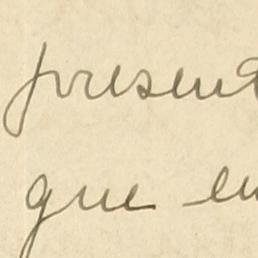 present
que en